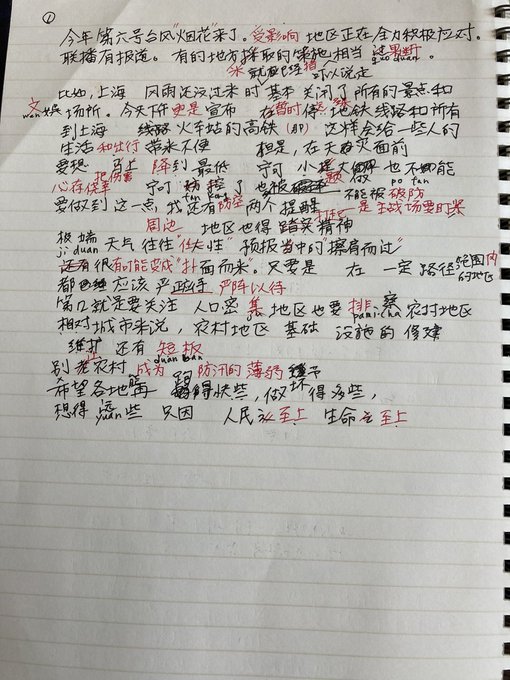 ①
今年第六号台风"烟花"来了。受影响 地区正在全力积极应对。
联播有报道。有的地方採取的策施相当 过果断。
guo duan
可以说是
比如,上海 风雨还没过来 时 基本 关闭了所有的景点和
文娱 场所。今天下午更是宣布 在暂时停 地铁 线路和所有
wen
到上海 线路 火车站的高铁 (那) 这样会给一些人的
生活和出行 带来不便 但是,在天 灾面前
要想 把伤害 降到 最低 宁可 小题大做 也 不 可能
心存侥幸 宁可 防控了 也被 不能被破防
fan kang
po fan
要做到这一点,我还有 防空 两个 提醒 打 是主战场要
周边 地区也得 踏实精神
极端 天气 往往"任性" 预报当中的"擦肩而过"
ji duan
还有很有可能变成"扑面而来"。只要是 在 一定 路径范围内
的地区
都 应该 严阵以待
第二就是要关注 人口密集 地区也要 排察 农村地区
相对城市来说,农村地区 基础 设施的 修建
维护 还有 短板
duan ban
别 农村 成为 防汛的薄弱
希望各地能 跑得快些,做 得多些,
想得 远些 只因 人民 至上 生命 至上
yuan